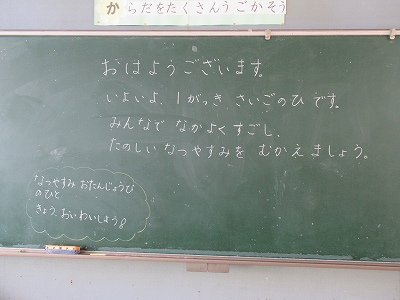 からだをたくさんうごかそう
おはようございます。
いよいよ、1がっき、さいごのひです。
みんなでなかよくすごし、
たのしいなつやすみをむかえましょう。
なつやすみおたんじょうび
のひと
きょう、おいわいしよう!